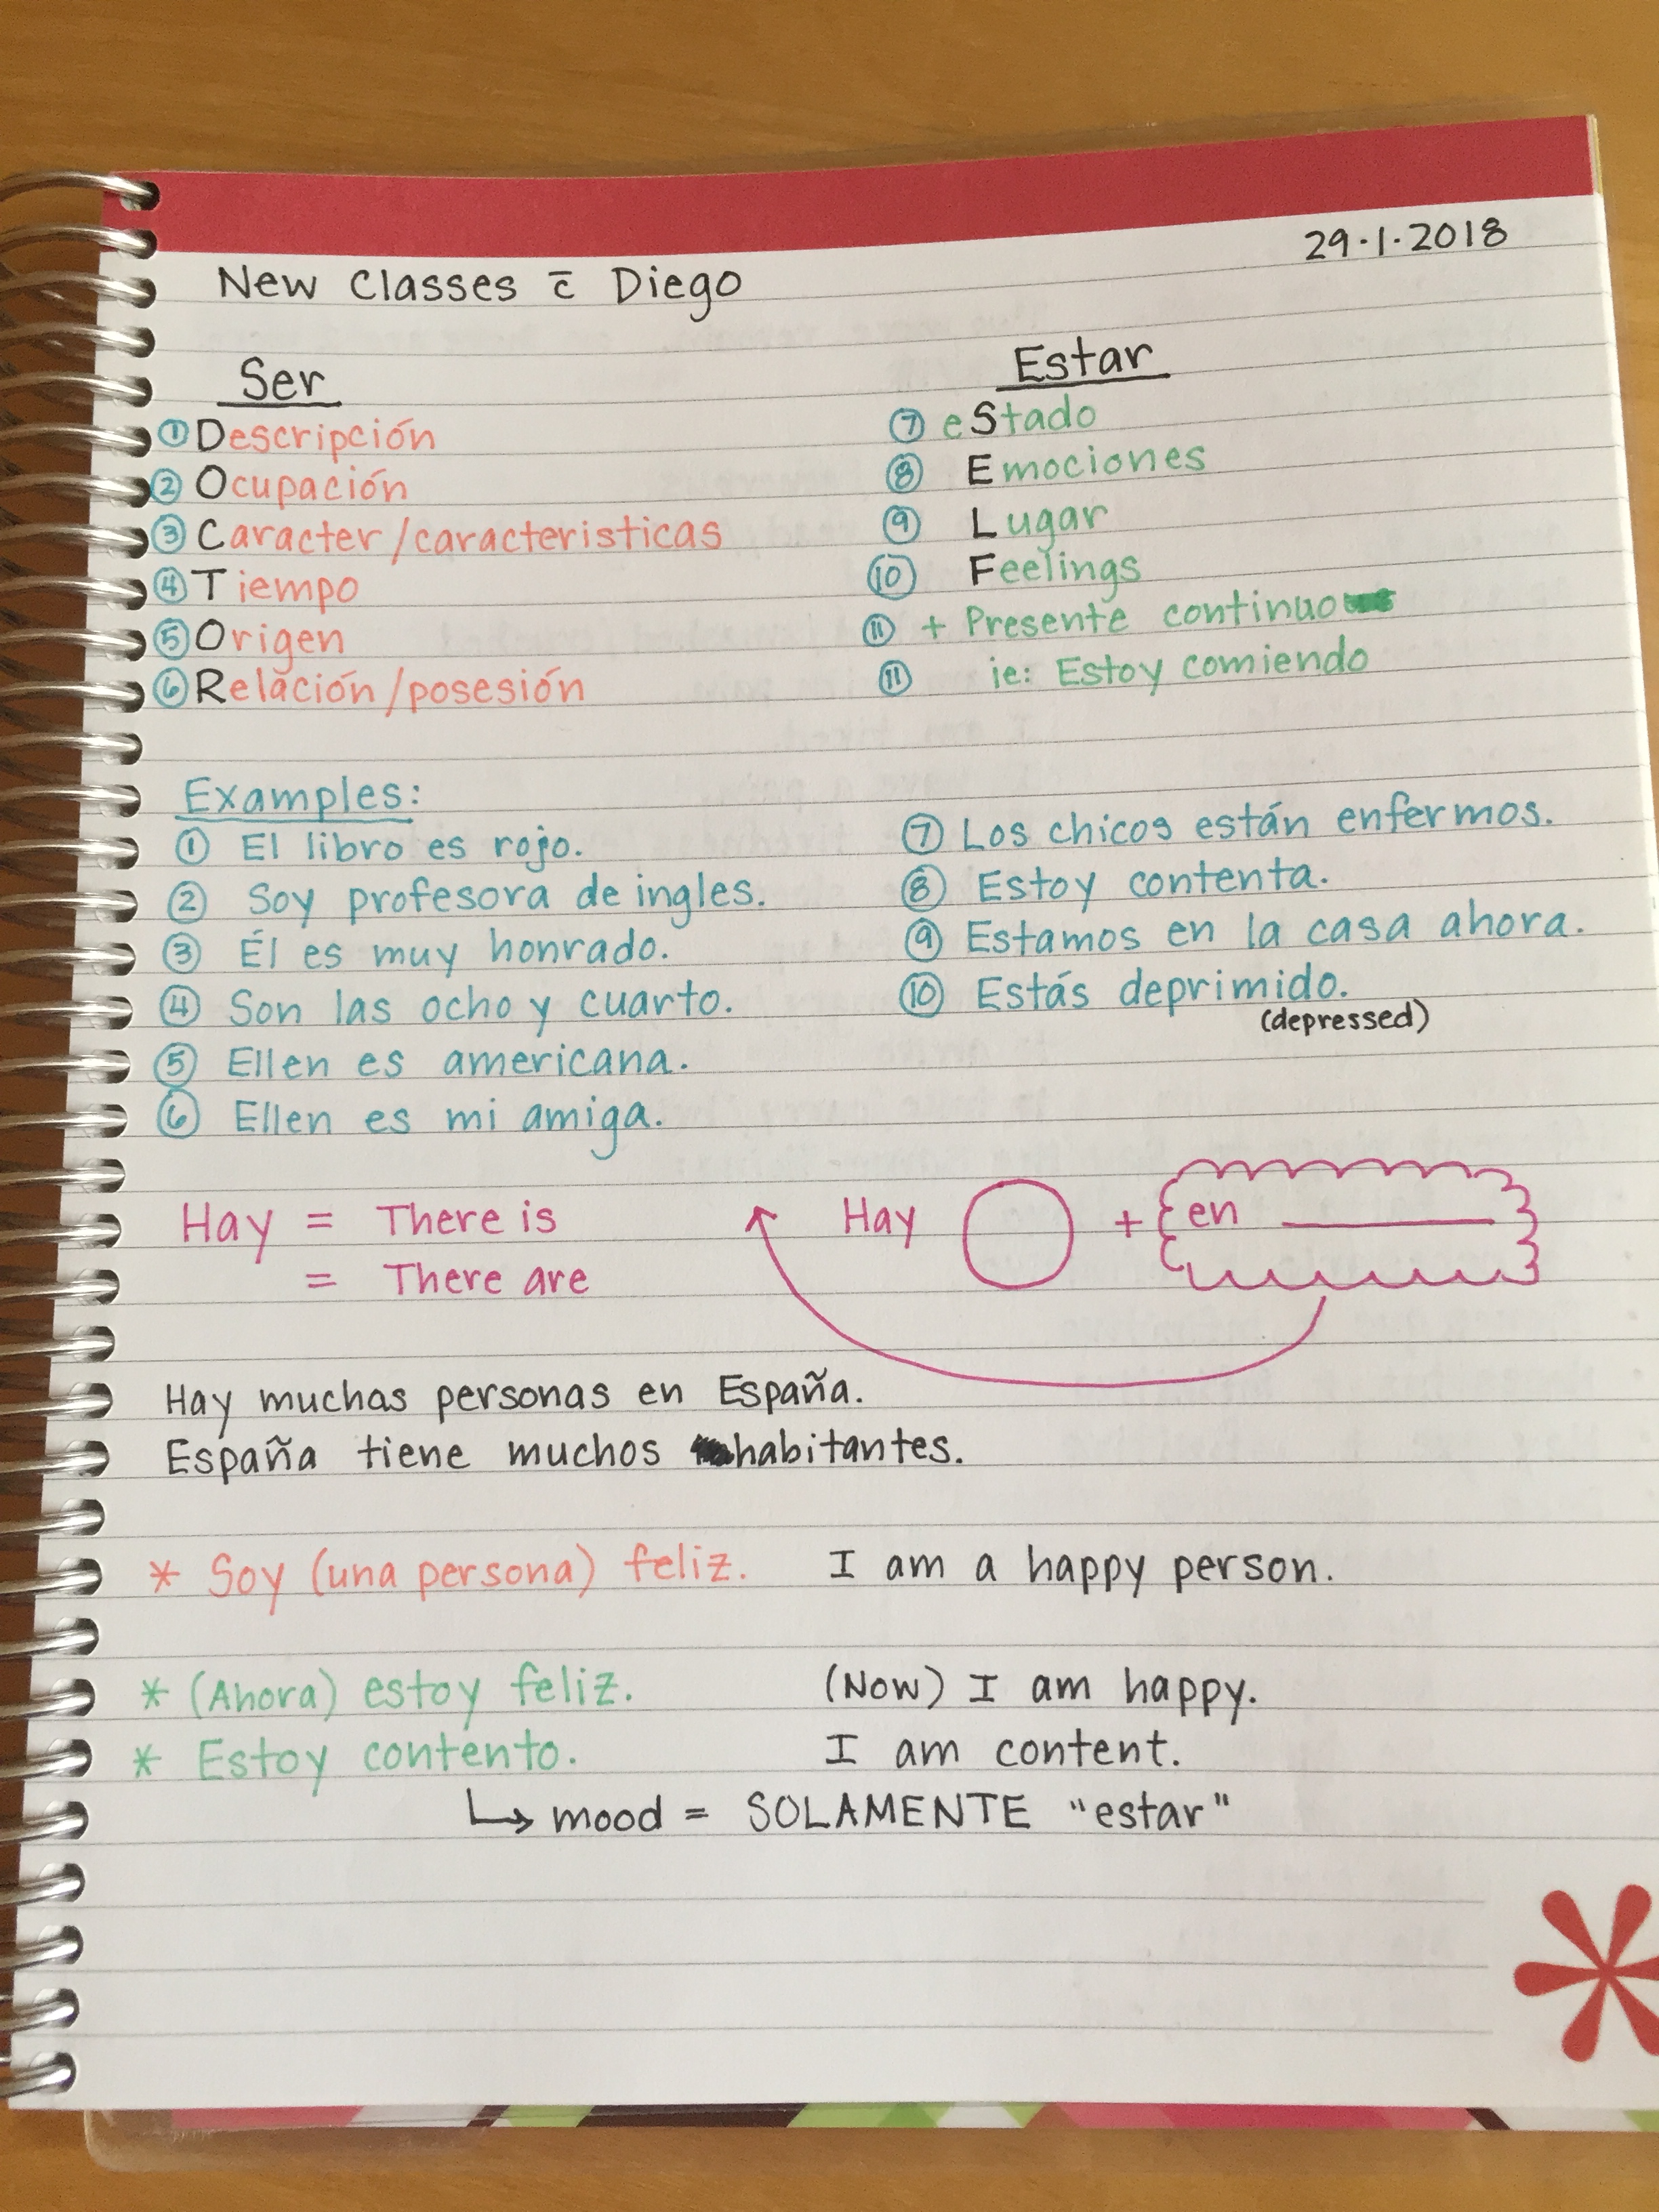 29.1.2018
New Classes c̄ Diego
Ser
① Descripción
② Ocupación
③ Caracter/caracteristicas
④ Tiempo
⑤ Origen
⑥ Relación/posesión
Estar
⑦ eStado
⑧ Emociones
⑨ Lugar
⑩ Feelings
⑪ + Presente continuo
⑪ ie: Estoy comiendo
Examples:
① El libro es rojo.
② Soy profesora de ingles.
③ Él es muy honrado.
④ Son las ocho y cuarto.
⑤ Ellen es americana.
⑥ Ellen es mi amiga.
⑦ Los chicos están enfermos.
⑧ Estoy contenta.
⑨ Estamos en la casa ahora.
⑩ Estás deprimido.
(depressed)
Hay = There is
= There are
Hay + en ______
Hay muchas personas en España.
España tiene muchos habitantes.
* Soy (una persona) feliz. I am a happy person.
* (Ahora) estoy feliz. (Now) I am happy.
* Estoy contento. I am content.
↳ mood = SOLAMENTE "estar"